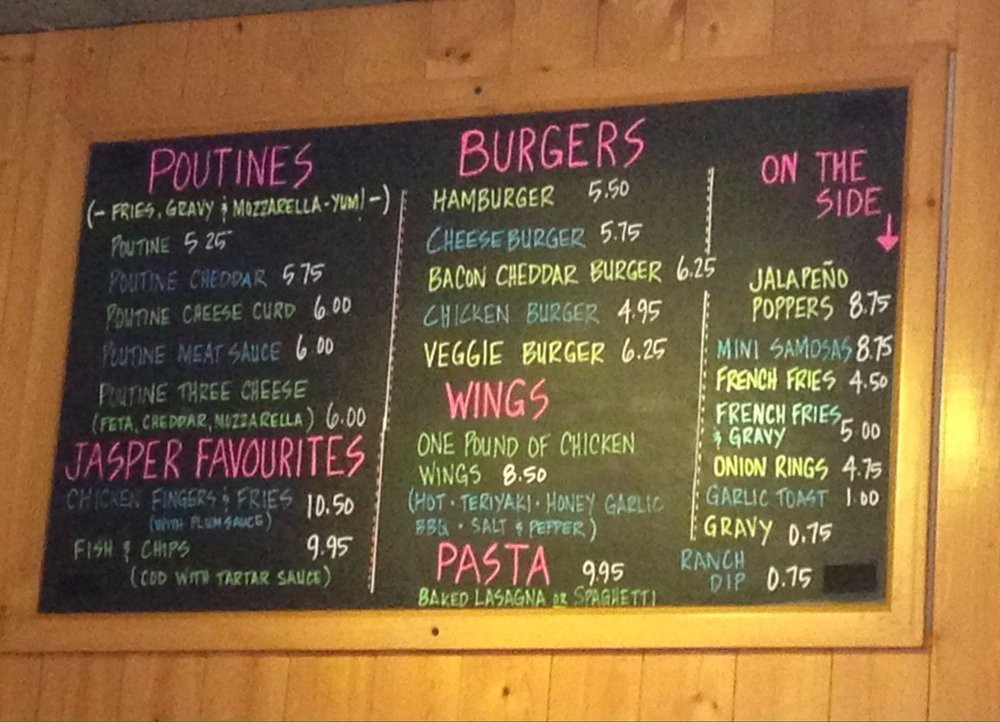 POUTINES
(- FRIES, GRAVY & MOZZARELLA - YUM! -)
POUTINE 5.25
POUTINE CHEDDAR 5.75
POUTINE CHEESE CURD 6.00
POUTINE MEAT SAUCE 6.00
POUTINE THREE CHEESE
(FETA, CHEDDAR, MOZZARELLA) 6.00
JASPER FAVOURITES
CHICKEN FINGERS & FRIES 10.50
(WITH PLUM SAUCE)
FISH & CHIPS 9.95
(COD WITH TARTAR SAUCE)
BURGERS
HAMBURGER 5.50
CHEESEBURGER 5.75
BACON CHEDDAR BURGER 6.25
CHICKEN BURGER 4.95
VEGGIE BURGER 6.25
WINGS
ONE POUND OF CHICKEN
WINGS 8.50
(HOT · TERIYAKI · HONEY GARLIC
BBQ · SALT & PEPPER)
PASTA 9.95
BAKED LASAGNA OR SPAGHETTI
ON THE
SIDE
JALAPEÑO
POPPERS 8.75
MINI SAMOSAS 8.75
FRENCH FRIES 4.50
FRENCH FRIES
& GRAVY 5.00
ONION RINGS 4.75
GARLIC TOAST 1.00
GRAVY 0.75
RANCH
DIP 0.75